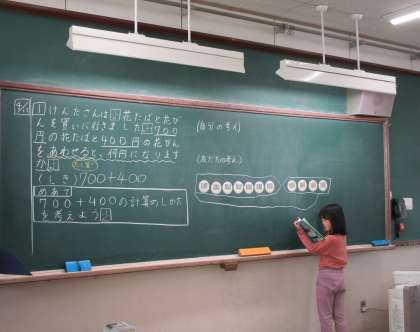 9/10
1 けんたさんは、花たばと花び
んを買いに行きました。700
円の花たばと400円の花びん
をあわせると、何円になります
か。
(しき)700+400
めあて
700+400の計算のしかた
を考えよう。
(自分の考え)
(友だちの考え)